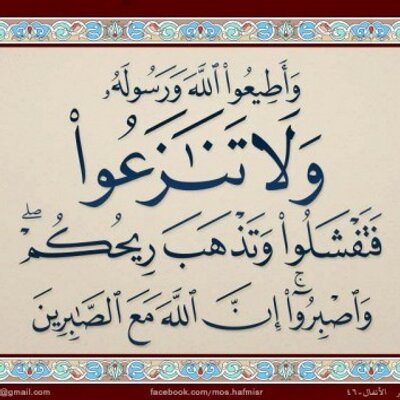 وَأَطِيعُوا۟ ٱللَّهَ وَرَسُولَهُۥ
وَلَا تَنَٰزَعُوا۟
فَتَفْشَلُوا۟ وَتَذْهَبَ رِيحُكُمْ ۖ
وَٱصْبِرُوٓا۟ ۚ إِنَّ ٱللَّهَ مَعَ ٱلصَّٰبِرِينَ
الأنفال-٤٦
facebook.com/mos.hafmisr
@gmail.com